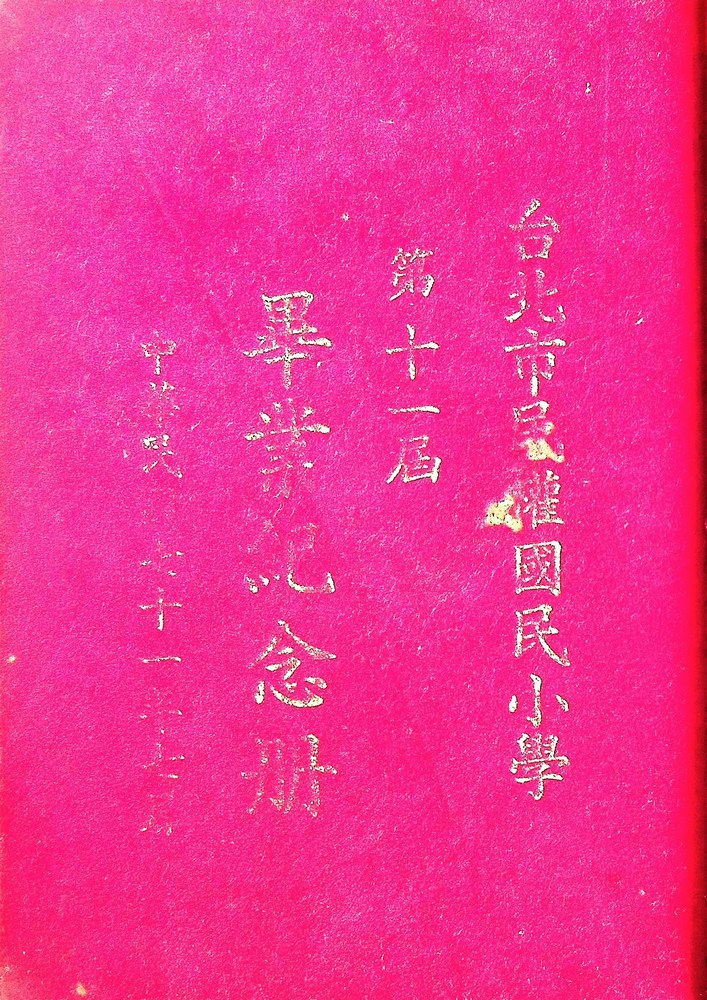 台北市民權國民小學
第十一屆
畢業紀念册
中華民七十一年